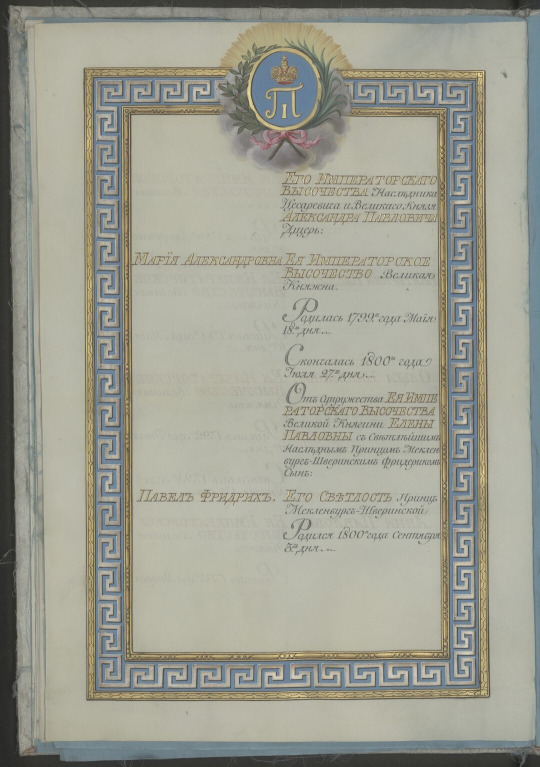 П I
ЕГО ИМПЕРАТОРСКАГО
ВЫСОЧЕСТВА Наслѣдника
Цесаревича и Великаго Князя
АЛЕКСАНДРА ПАВЛОВИЧА
Дщерь:
МАРІЯ АЛЕКСАНДРОВНА ЕЯ ИМПЕРАТОРСКОЕ
ВЫСОЧЕСТВО Великая
Княжна.
Родилась 1799го года Маїя
18го дня...
Скончалась 1800го года
Іюля 27го дня...
Отъ Супружества ЕЯ ИМПЕ
РАТОРСКАГО ВЫСОЧЕСТВА
Великой Княгини ЕЛЕНЫ
ПАВЛОВНЫ съ Свѣтлѣйшимъ
Наслѣднымъ Принцомъ Меклен
бургъ-Шверинскимъ Фридерикомъ
Сынъ:
ПАВЕЛЪ ФРИДРИХЪ. ЕГО СВѢТЛОСТЬ Принцъ
Мекленбургъ-Шверинской
Родился 1800го года Сентября
3го дня...